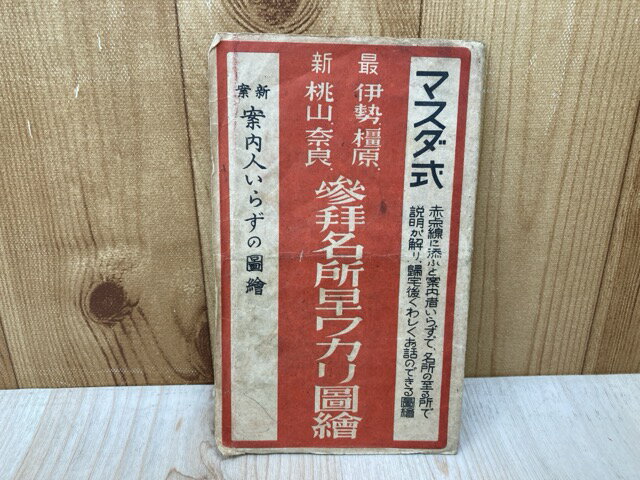 マスダ式
赤点線に添ふと案内者いらずで名所の至る所で
説明が解り、歸宅後くわしくお話のできる圖繪
最新
伊勢、橿原、
桃山、奈良、
參拜名所早ワカリ圖繪
新案
案内人いらずの圖繪